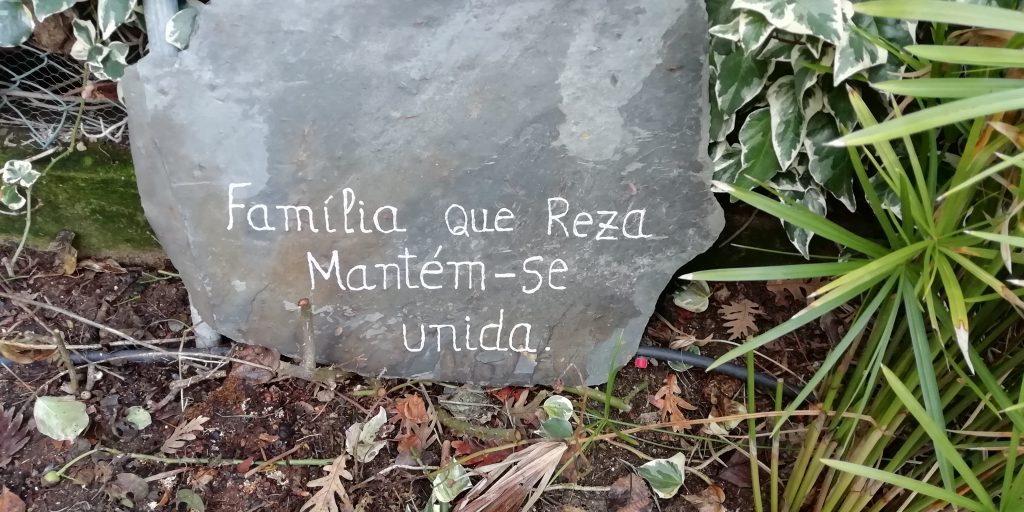 Família que Reza
Mantém-se
unida.